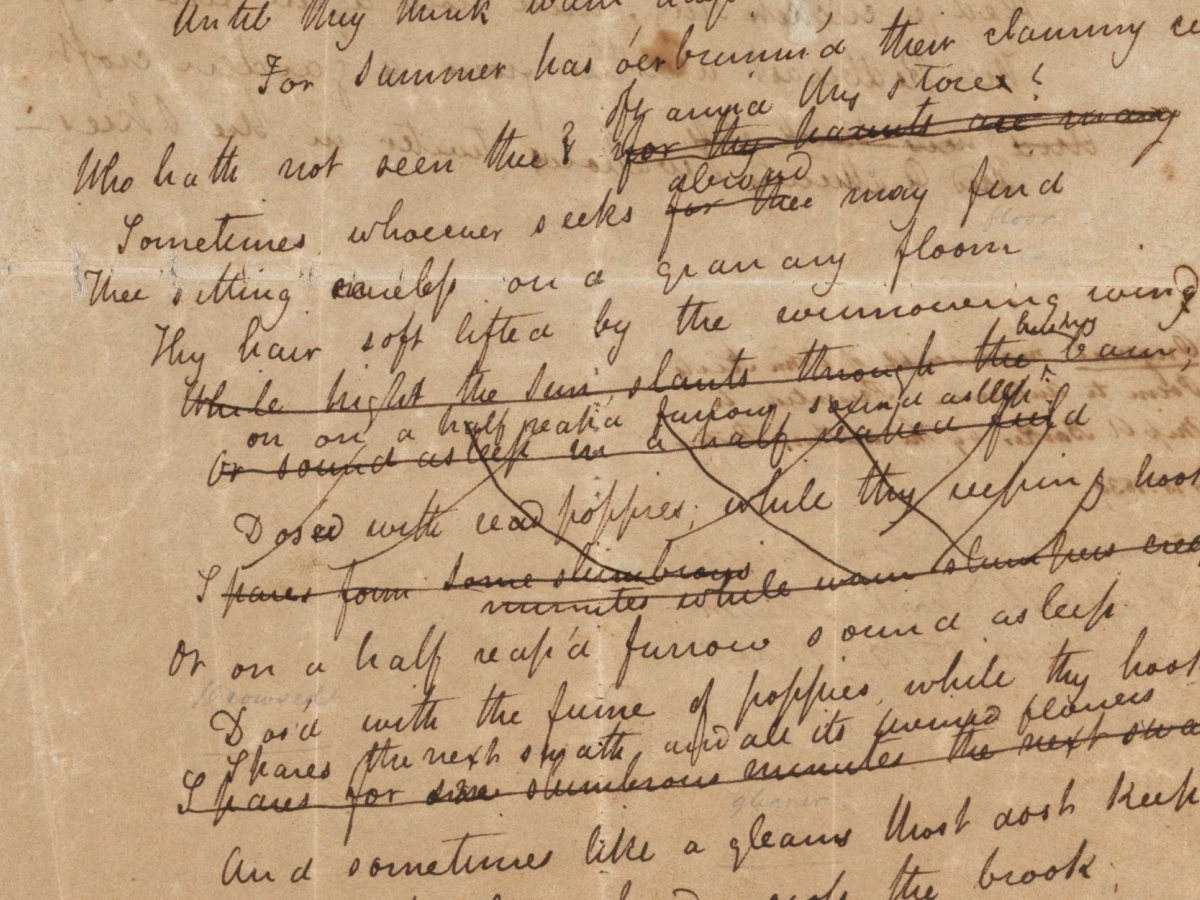 Until they think warm
For Summer has o'erbrimm'd their clammy
oft amid thy stores?
Who hath not seen thee? for thy haunts are many
abroad
Sometimes whoever seeks for thee may find
floor
Thee sitting careless on a granary floom
Thy hair soft lifted by the winnowing wing
husky
While bright the Sun slants through the barn;
on on a half reap'd furrow sound asleep
Or sound asleep in a half reaped field
Dosed with read poppies; while thy reeping hook
Spares form some slumbrous
minutes while warm slumpers creep
Or on a half reap'd furrow sound asleep
Drowsed
Dos'd with the fume of poppies, while thy hook
Spares the next swath and all its twined flowers
Spares for some slumbrous minutes the next swath
gleaner
And sometimes like a gleans thost dost keep
the brook